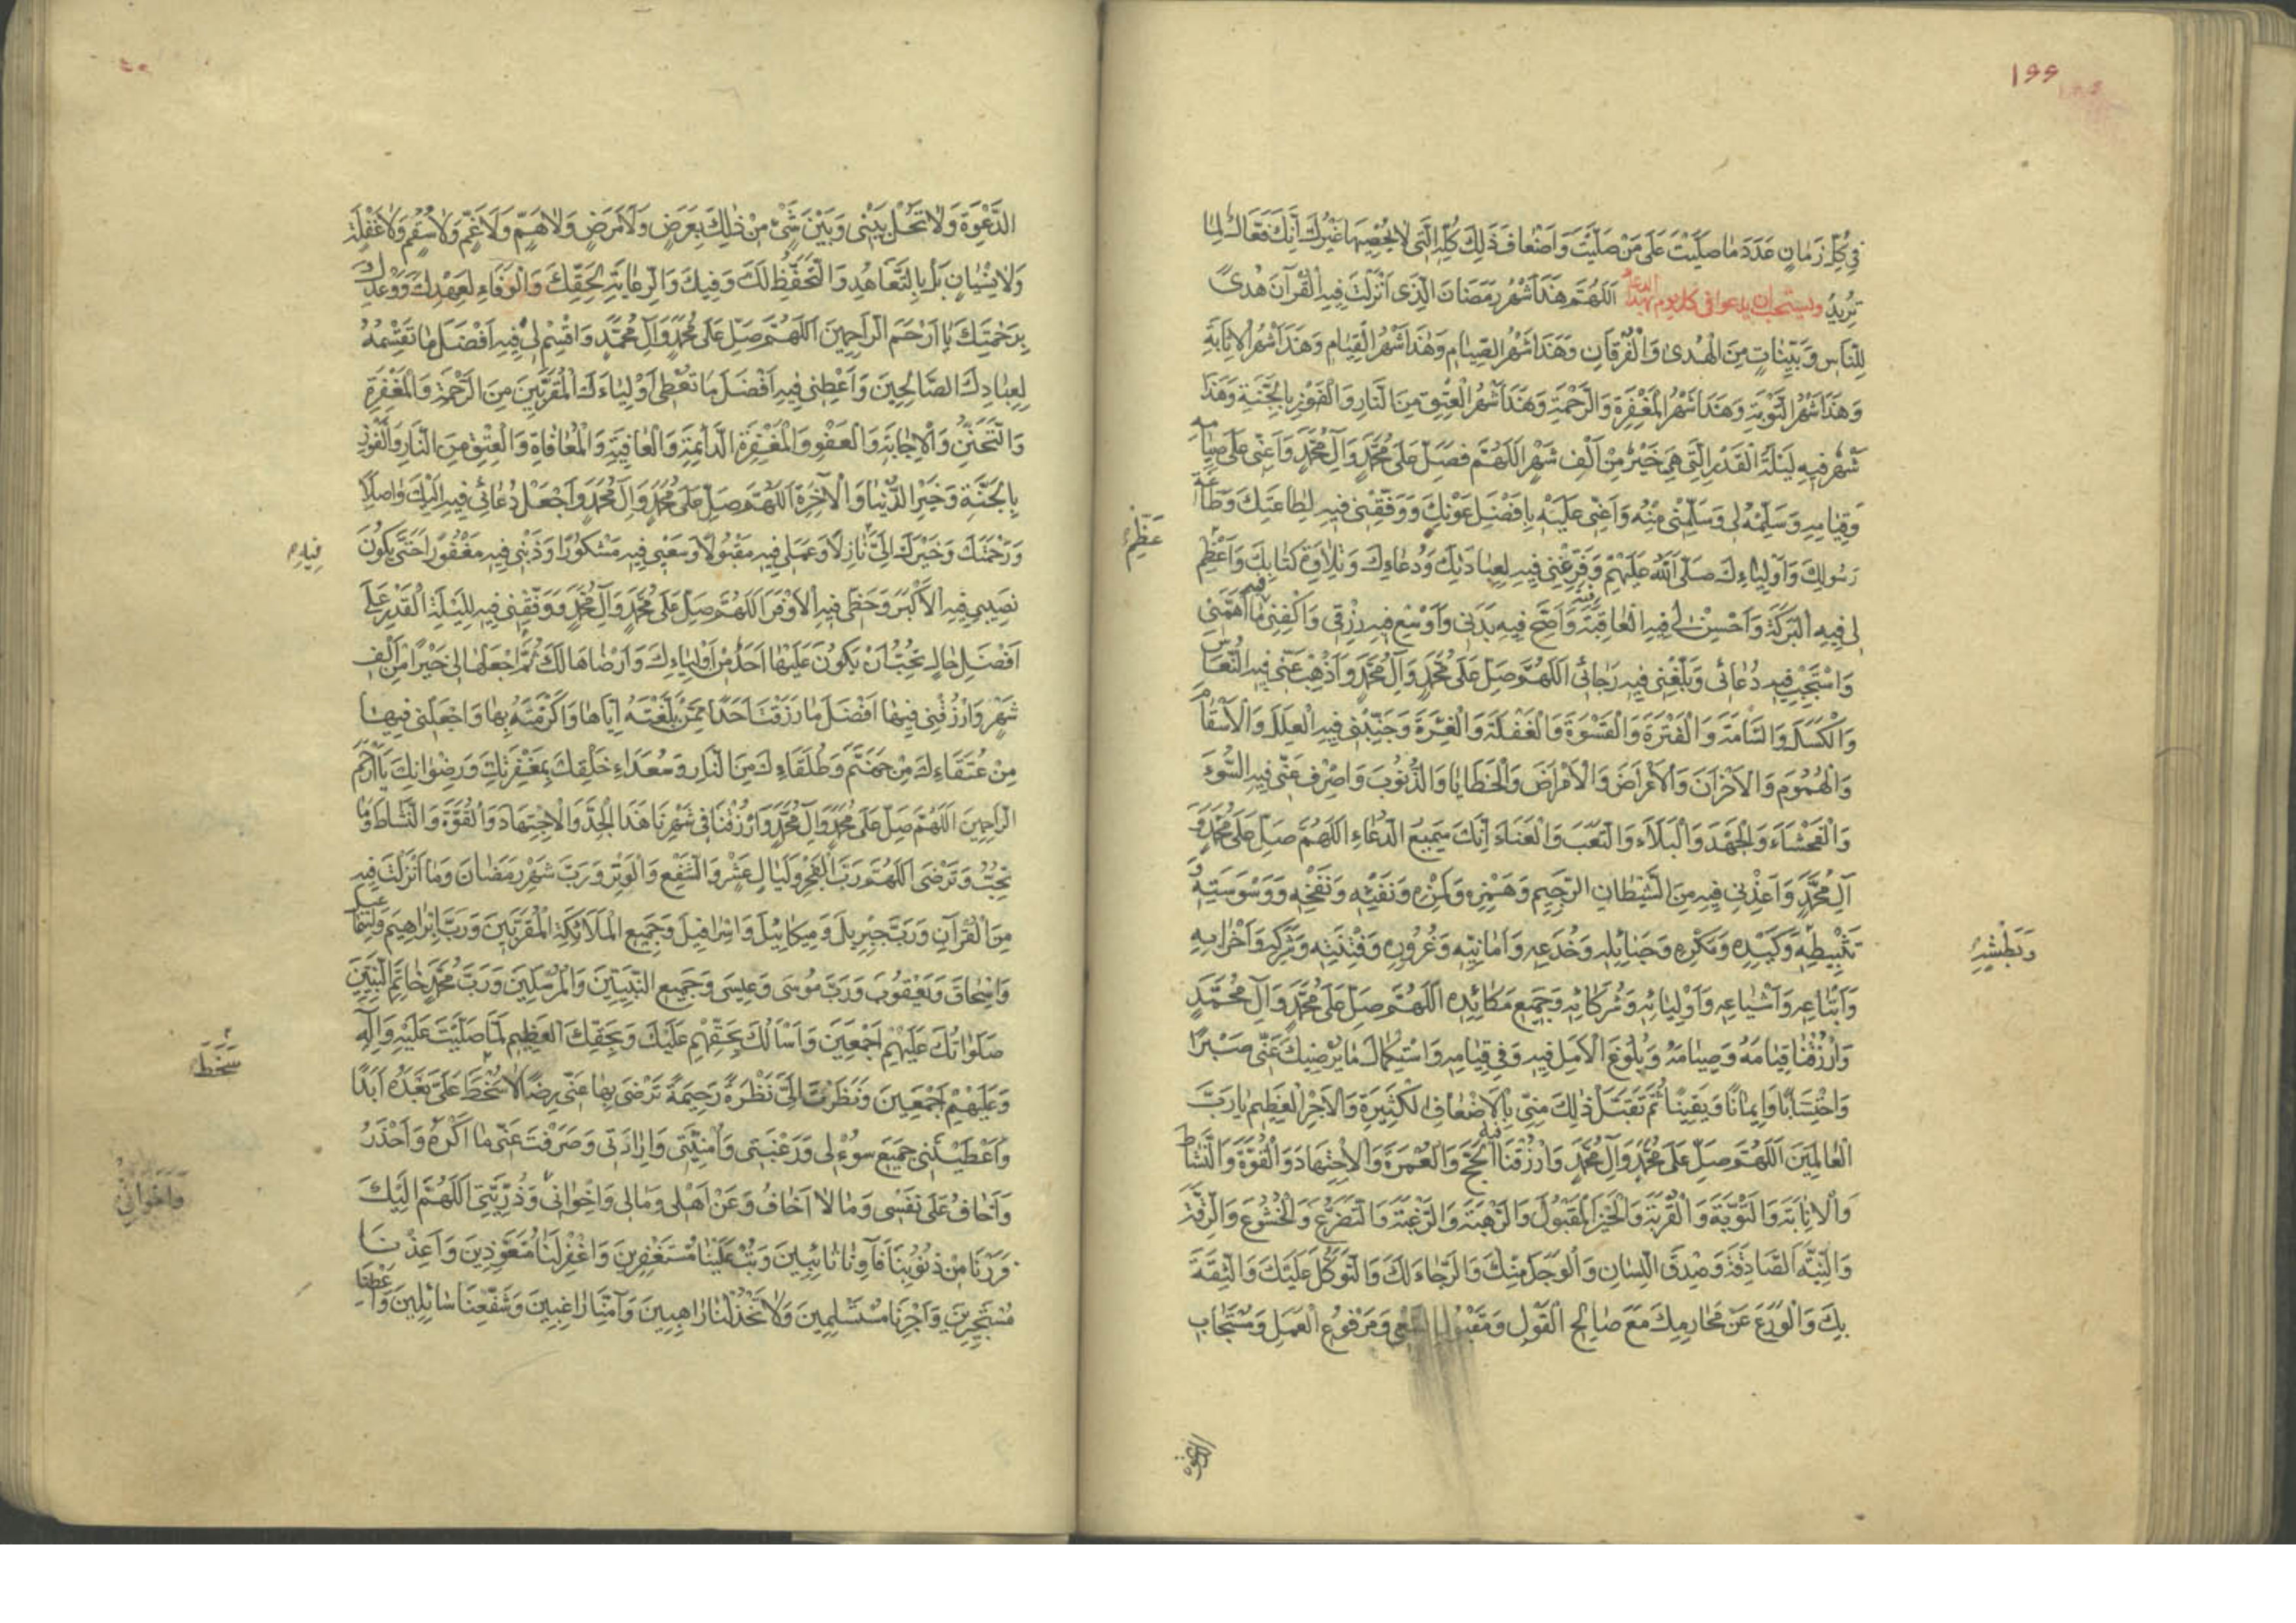 ١٩٩
فِي كُلِّ زَمَانٍ عَدَدَ مَا صَلَّيْتَ عَلَى مَنْ صَلَّيْتَ وَاَضْعَافَ ذَلِكَ كُلِّهِ الَّتِي لَا يُحْصِيهَا غَيْرُكَ اِنَّكَ فَعَّالٌ لِمَا
تُرِيدُ ويستحب ان يدعو في كل يوم بهذا الدعاء اَللّهُمَّ هَذَا شَهْرُ رَمَضَانَ الَّذِي اَنْزَلْتَ فِيهِ الْقُرْآنَ هُدًى
لِلنَّاسِ وَبَيِّنَاتٍ مِنَ الْهُدَى وَالْفُرْقَانِ وَهَذَا شَهْرُ الصِّيَامِ وَهَذَا شَهْرُ الْقِيَامِ وَهَذَا شَهْرُ الْاِنَابَةِ
وَهَذَا شَهْرُ التَّوْبَةِ وَهَذَا شَهْرُ الْمَغْفِرَةِ وَالرَّحْمَةِ وَهَذَا شَهْرُ الْعِتْقِ مِنَ النَّارِ وَالْفَوْزِ بِالْجَنَّةِ وَهَذَا
شَهْرٌ فِيهِ لَيْلَةُ الْقَدْرِ الَّتِي هِيَ خَيْرٌ مِنْ اَلْفِ شَهْرٍ اَللّهُمَّ فَصَلِّ عَلَى مُحَمَّدٍ وَآلِ مُحَمَّدٍ وَاَعِنِّي عَلَى صِيَامِهِ
وَقِيَامِهِ وَسَلِّمْهُ لِي وَسَلِّمْنِي مِنْهُ وَاَعِنِّي عَلَيْهِ بِاَفْضَلِ عَوْنِكَ وَوَفِّقْنِي فِيهِ لِطَاعَتِكَ وَطَاعَةِ
رَسُولِكَ وَاَوْلِيَاءِكَ صَلَّى اللهُ عَلَيْهِمْ وَفَرِّغْنِي فِيهِ لِعِبَادَتِكَ وَدُعَاءِكَ وَتِلَاوَةِ كِتَابِكَ وَاَعْظِمْ
عَظِّمْ
لِي فِيهِ الْبَرَكَةَ وَاَحْسِنْ لِي فِيهِ الْعَاقِبَةَ وَاَصِحَّ فِيهِ بَدَنِي وَاَوْسِعْ فِيهِ رِزْقِي وَاكْفِنِي فِيهِ مَا اَهَمَّنِي
وَاسْتَجِبْ فِيهِ دُعَائِي وَبَلِّغْنِي فِيهِ رَجَائِي اَللّهُمَّ صَلِّ عَلَى مُحَمَّدٍ وَآلِ مُحَمَّدٍ وَاَذْهِبْ عَنِّي فِيهِ النُّعَاسَ
وَالْكَسَلَ وَالسَّامَةَ وَالْفَتْرَةَ وَالْقَسْوَةَ وَالْغَفْلَةَ وَالْغِرَّةَ وَجَنِّبْنِي فِيهِ الْعِلَلَ وَالْاَسْقَامَ
وَالْهُمُومَ وَالْاَحْزَانَ وَالْاَعْرَاضَ وَالْاَمْرَاضَ وَالْخَطَايَا وَالذُّنُوبَ وَاصْرِفْ عَنِّي فِيهِ السُّوءَ
وَالْفَحْشَاءَ وَالْجَهْدَ وَالْبَلَاءَ وَالتَّعَبَ وَالْعَنَاءَ اِنَّكَ سَمِيعُ الدُّعَاءِ اَللّهُمَّ صَلِّ عَلَى مُحَمَّدٍ وَ
آلِ مُحَمَّدٍ وَاَعِذْنِي فِيهِ مِنَ الشَّيْطَانِ الرَّجِيمِ وَهَمْزِهِ وَلَمْزِهِ وَنَفْثِهِ وَنَفْخِهِ وَوَسْوَسَتِهِ وَ
تَثْبِيطِهِ وَكَيْدِهِ وَمَكْرِهِ وَحَبَائِلِهِ وَخُدَعِهِ وَاَمَانِيِّهِ وَغُرُورِهِ وَفِتْنَتِهِ وَشَرَكِهِ وَاَحْزَابِهِ
وَبَطْشِهِ
وَاَتْبَاعِهِ وَاَشْيَاعِهِ وَاَوْلِيَائِهِ وَشُرَكَائِهِ وَجَمِيعِ مَكَائِدِهِ اَللّهُمَّ صَلِّ عَلَى مُحَمَّدٍ وَآلِ مُحَمَّدٍ
وَارْزُقْنَا قِيَامَهُ وَصِيَامَهُ وَبُلُوغَ الْاَمَلِ فِيهِ وَفِي قِيَامِهِ وَاسْتِكْمَالَ مَا يُرْضِيكَ عَنِّي صَبْرًا
وَاحْتِسَابًا وَاِيمَانًا وَيَقِينًا ثُمَّ تَقَبَّلْ ذَلِكَ مِنِّي بِالْاَضْعَافِ الْكَثِيرَةِ وَالْاَجْرِ الْعَظِيمِ يَا رَبَّ
الْعَالَمِينَ اَللّهُمَّ صَلِّ عَلَى مُحَمَّدٍ وَآلِ مُحَمَّدٍ وَارْزُقْنَا فيه الْحَجَّ وَالْعُمْرَةَ وَالْاِجْتِهَادَ وَالْقُوَّةَ وَالنَّشَاطَ
وَالْاِنَابَةَ وَالتَّوْبَةَ وَالْقُرْبَةَ وَالْخَيْرَ الْمَقْبُولَ وَالرَّهْبَةَ وَالرَّغْبَةَ وَالتَّضَرُّعَ وَالْخُشُوعَ وَالرِّقَّةَ
وَالنِّيَّةَ الصَّادِقَةَ وَصِدْقَ اللِّسَانِ وَالْوَجَلَ مِنْكَ وَالرَّجَاءَ لَكَ وَالتَّوَكُّلَ عَلَيْكَ وَالثِّقَةَ
بِكَ وَالْوَرَعَ عَنْ مَحَارِمِكَ مَعَ صَالِحِ الْقَوْلِ وَمَقْبُولِ السَّعْيِ وَمَرْفُوعِ الْعَمَلِ وَمُسْتَجَابِ
الدعوة
الدَّعْوَةِ وَلَا تَحُلْ بَيْنِي وَبَيْنَ شَيْءٍ مِنْ ذَلِكَ بِعَرَضٍ وَلَا مَرَضٍ وَلَا هَمٍّ وَلَا غَمٍّ وَلَا سُقْمٍ وَلَا غَفْلَةٍ
وَلَا نِسْيَانٍ بَلْ بِالتَّعَاهُدِ وَالتَّحَفُّظِ لَكَ وَفِيكَ وَالرِّعَايَةِ لِحَقِّكَ وَالْوَفَاءِ لِعَهْدِكَ وَوَعْدِكَ
بِرَحْمَتِكَ يَا اَرْحَمَ الرَّاحِمِينَ اَللّهُمَّ صَلِّ عَلَى مُحَمَّدٍ وَآلِ مُحَمَّدٍ وَاقْسِمْ لِي فِيهِ اَفْضَلَ مَا تَقْسِمُهُ
لِعِبَادِكَ الصَّالِحِينَ وَاَعْطِنِي فِيهِ اَفْضَلَ مَا تُعْطِي اَوْلِيَاءَكَ الْمُقَرَّبِينَ مِنَ الرَّحْمَةِ وَالْمَغْفِرَةِ
وَالتَّحَنُّنِ وَالْاِجَابَةِ وَالْعَفْوِ وَالْمَغْفِرَةِ الدَّائِمَةِ وَالْعَافِيَةِ وَالْمُعَافَاةِ وَالْعِتْقِ مِنَ النَّارِ وَالْفَوْزِ
بِالْجَنَّةِ وَخَيْرِ الدُّنْيَا وَالْآخِرَةِ اَللّهُمَّ صَلِّ عَلَى مُحَمَّدٍ وَآلِ مُحَمَّدٍ وَاجْعَلْ دُعَائِي فِيهِ اِلَيْكَ وَاصِلًا
وَرَحْمَتَكَ وَخَيْرَكَ اِلَيَّ نَازِلًا وَعَمَلِي فِيهِ مَقْبُولًا وَسَعْيِي فِيهِ مَشْكُورًا وَذَنْبِي فِيهِ مَغْفُورًا حَتَّى يَكُونَ
فِيهِ
نَصِيبِي فِيهِ الْاَكْبَرَ وَحَظِّي فِيهِ الْاَوْفَرَ اَللّهُمَّ صَلِّ عَلَى مُحَمَّدٍ وَآلِ مُحَمَّدٍ وَوَفِّقْنِي فِيهِ لِلَيْلَةِ الْقَدْرِ عَلَى
اَفْضَلِ حَالٍ تُحِبُّ اَنْ يَكُونَ عَلَيْهَا اَحَدٌ مِنْ اَوْلِيَاءِكَ وَاَرْضَاهَا لَكَ ثُمَّ اجْعَلْهَا لِي خَيْرًا مِنْ اَلْفِ
شَهْرٍ وَارْزُقْنِي فِيهَا اَفْضَلَ مَا رَزَقْتَ اَحَدًا مِمَّنْ بَلَّغْتَهُ اِيَّاهَا وَاَكْرَمْتَهُ بِهَا وَاجْعَلْنِي فِيهَا
مِنْ عُتَقَاءِكَ مِنْ جَهَنَّمَ وَطُلَقَاءِكَ مِنَ النَّارِ وَسُعَدَاءِ خَلْقِكَ بِمَغْفِرَتِكَ وَرِضْوَانِكَ يَا اَرْحَمَ
الرَّاحِمِينَ اَللّهُمَّ صَلِّ عَلَى مُحَمَّدٍ وَآلِ مُحَمَّدٍ وَارْزُقْنَا فِي شَهْرِنَا هَذَا الْجِدَّ وَالْاِجْتِهَادَ وَالْقُوَّةَ وَالنَّشَاطَ وَمَا
تُحِبُّ وَتَرْضَى اَللّهُمَّ رَبَّ الْفَجْرِ وَلَيَالٍ عَشْرٍ وَالشَّفْعِ وَالْوَتْرِ وَرَبَّ شَهْرِ رَمَضَانَ وَمَا اَنْزَلْتَ فِيهِ
مِنَ الْقُرْآنِ وَرَبَّ جِبْرِيلَ وَمِيكَائِيلَ وَاِسْرَافِيلَ وَجَمِيعِ الْمَلَائِكَةِ الْمُقَرَّبِينَ وَرَبَّ اِبْرَاهِيمَ وَاِسْمَاعِيلَ
وَاِسْحَاقَ وَيَعْقُوبَ وَرَبَّ مُوسَى وَعِيسَى وَجَمِيعِ النَّبِيِّينَ وَالْمُرْسَلِينَ وَرَبَّ مُحَمَّدٍ خَاتَمِ النَّبِيِّينَ
صَلَوَاتُكَ عَلَيْهِمْ اَجْمَعِينَ وَاَسْاَلُكَ بِحَقِّهِمْ عَلَيْكَ وَبِحَقِّكَ الْعَظِيمِ لَمَّا صَلَّيْتَ عَلَيْهِ وَآلِهِ
وَعَلَيْهِمْ اَجْمَعِينَ وَنَظَرْتَ اِلَيَّ نَظْرَةً رَحِيمَةً تَرْضَى بِهَا عَنِّي رِضًا لَا تَسْخَطُ عَلَيَّ بَعْدَهُ اَبَدًا
سَخَطَ
وَاَعْطَيْتَنِي جَمِيعَ سُؤْلِي وَرَغْبَتِي وَاُمْنِيَّتِي وَاِرَادَتِي وَصَرَفْتَ عَنِّي مَا اَكْرَهُ وَاَحْذَرُ
وَاَخَافُ عَلَى نَفْسِي وَمَا لَا اَخَافُ وَعَنْ اَهْلِي وَمَالِي وَاِخْوَانِي وَذُرِّيَّتِي اَللّهُمَّ اِلَيْكَ
وَاَخَوَاتِي
فَرَرْنَا مِنْ ذُنُوبِنَا فَآوِنَا تَائِبِينَ وَتُبْ عَلَيْنَا مُسْتَغْفِرِينَ وَاغْفِرْ لَنَا مُتَعَوِّذِينَ وَاَعِذْنَا
مُسْتَجِيرِينَ وَاَجِرْنَا مُسْتَسْلِمِينَ وَلَا تَخْذُلْنَا رَاهِبِينَ وَآمِنَّا رَاغِبِينَ وَشَفِّعْنَا سَائِلِينَ وَاَعْطِنَا